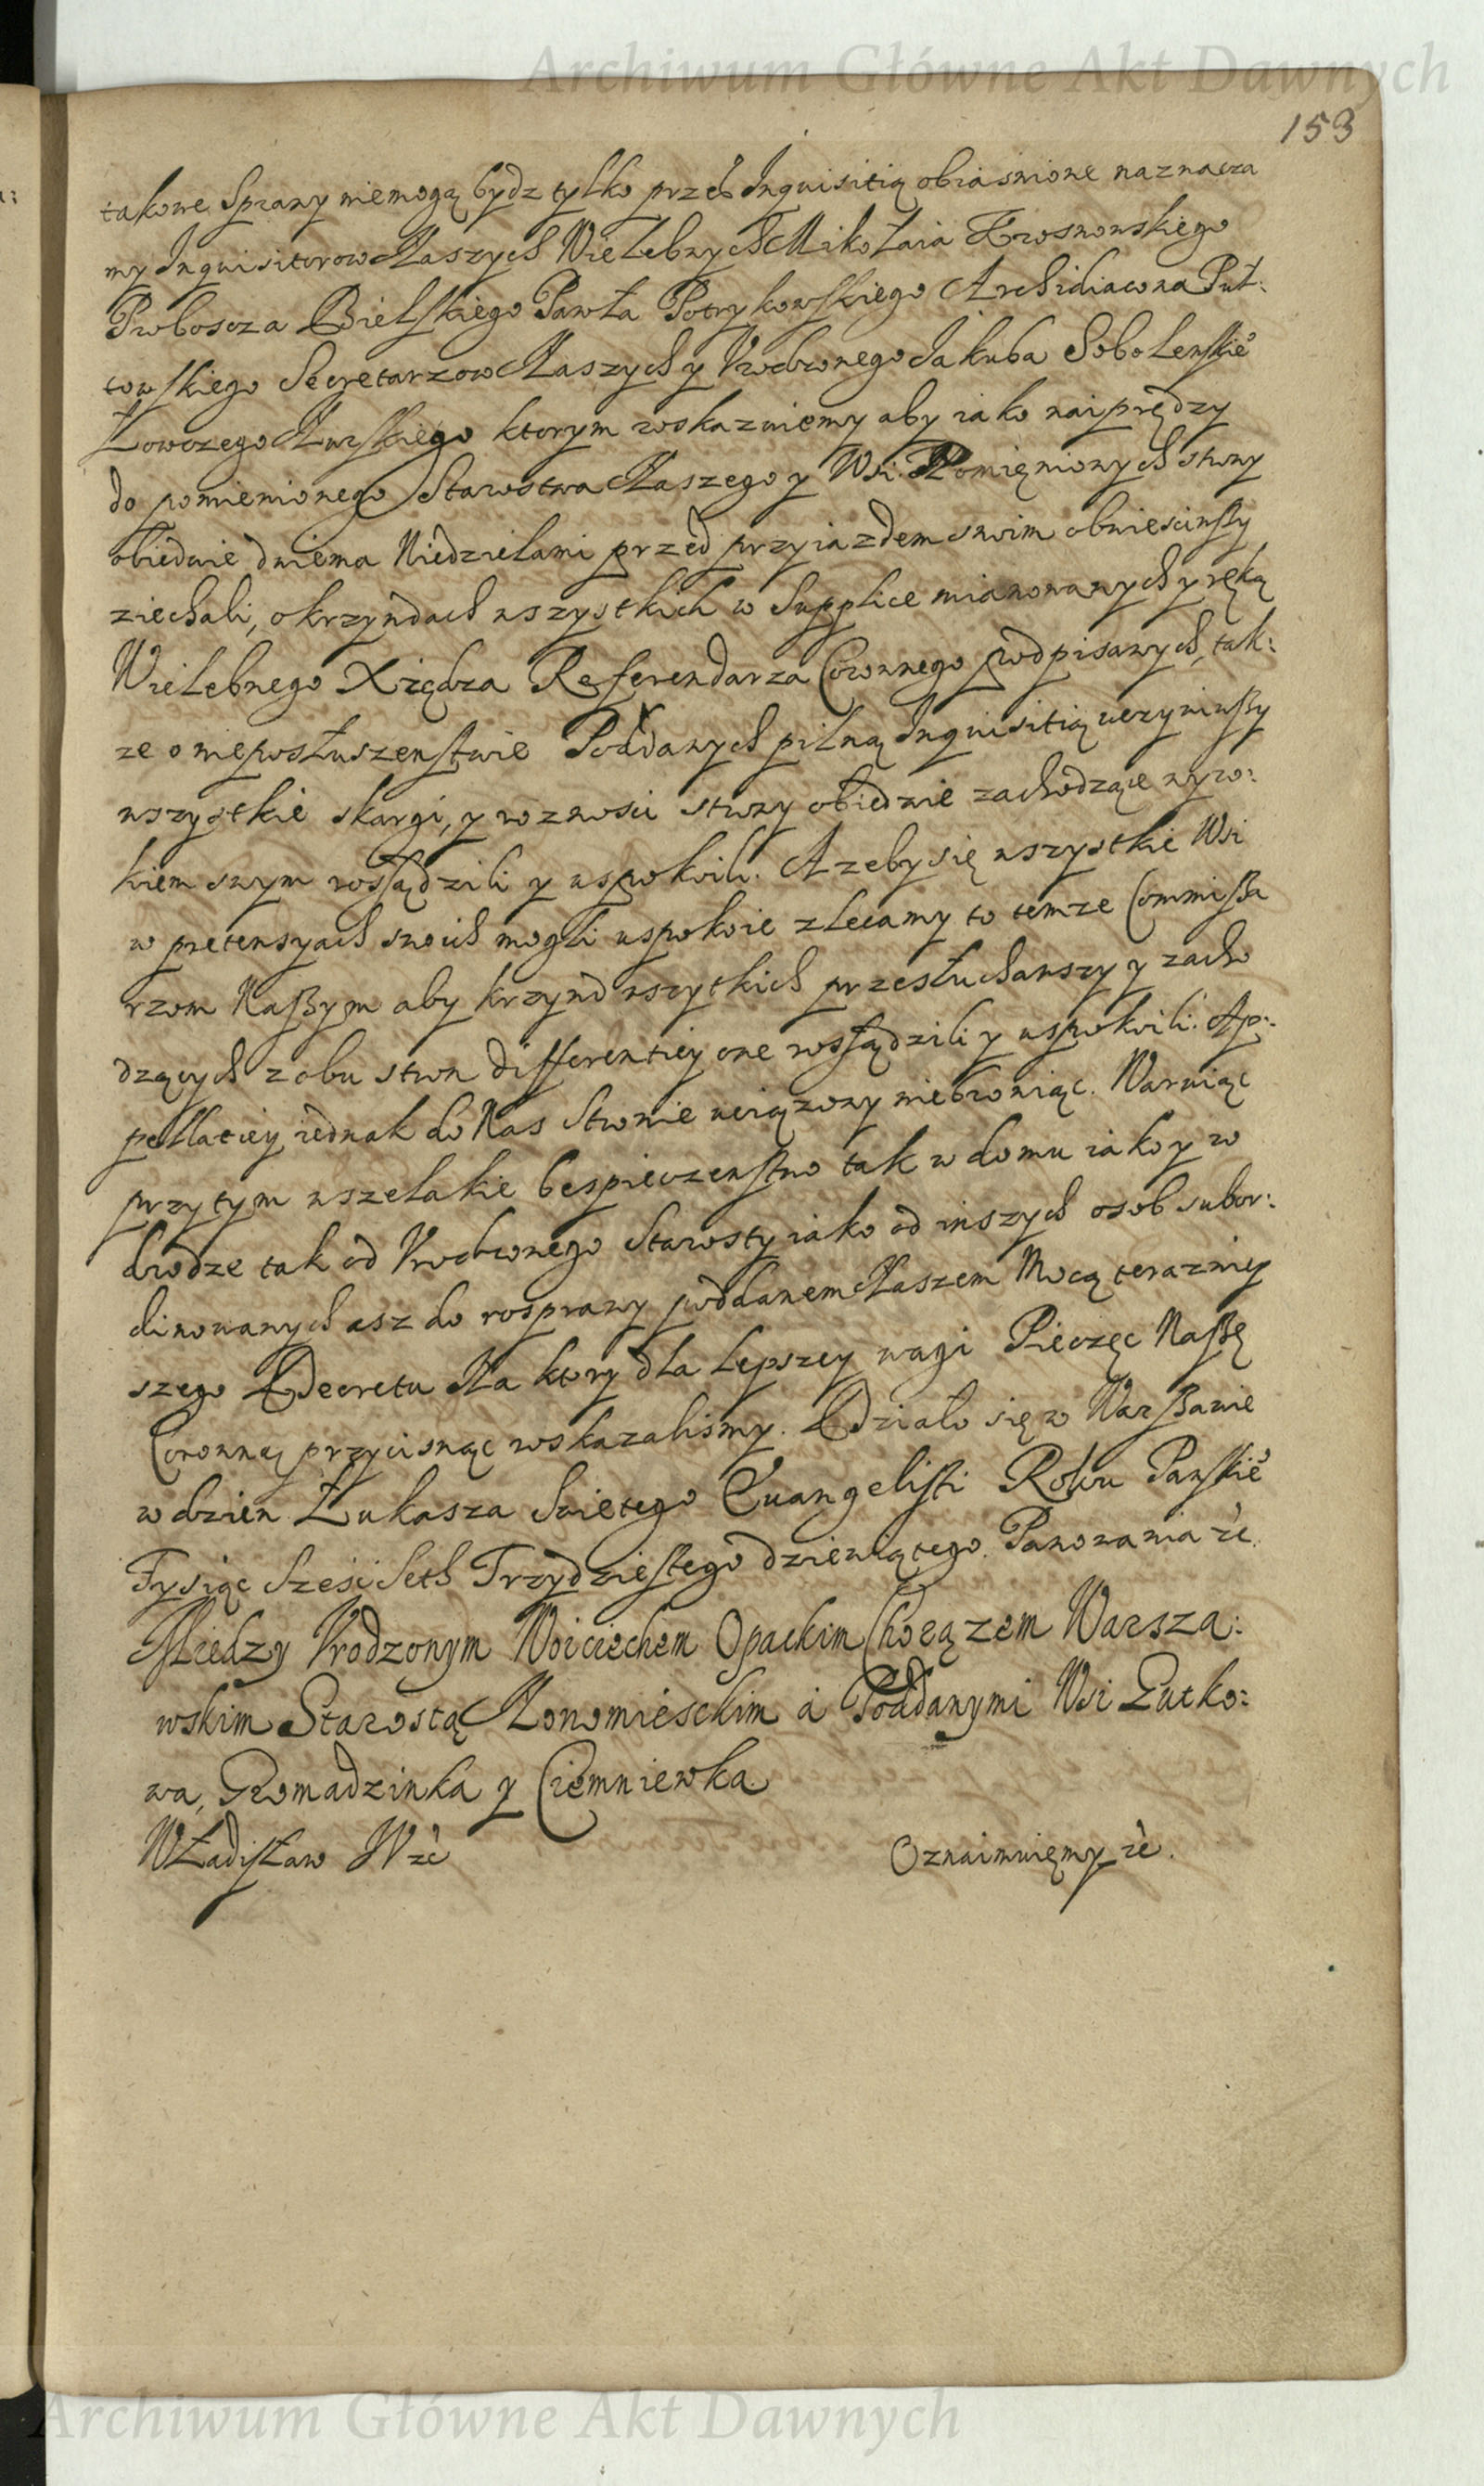 Archiwum Główne Akt Dawnych
153
takowe Sprawy niemogą bydz tylko przez Inquisitią obiasnione naznacza
my Inquisitorow Naszych Wielebnych Mikołaia Krosnowskiego
Proboscza Bielskiego Pawła Potrykowskiego Archidiacona Puł:
towskiego Secretarzow Naszych y Vrodzonego Jakuba Sobolewskie
Łowczego Nurskiego ktorym roskazuiemy aby iako naiprędzy
do pomienionego Starostwa Naszego y Wsi Pomięnionych strony
obiedwie dwiema Niedzielami przed przyiazdem swoim obwiesciwszy
ziechali, o krzywdach wszystkich w Supplice mianowanych y ręką
Wielebnego Xiędza Referendarza Coronnego podpisanych, tak:
ze o nieposłuszenstwie Poddanych pilną Inquisitią uczyniwszy
wszystkie skargi, y roznosci strony obiedwie zachodzące wyro:
kiem swym rossądzili y uspokoili. A zeby się wszystkie Wsi
w pretensyach swoich mogli uspokoic zlecamy to temze Commissa
rzom Naszym aby krzywd wszytkich przesłuchawszy y zacho
dzących z obu stron differentiey one rossądzili y uspokoili. Ap:
pellatiey iednak do Nas Stronie uciązony niebroniąc. Waruiąc
przytym wszelakie bespieczenstwo tak w domu iako y w
drodze tak od Vrodzonego Starosty iako od inszych osob subor:
dinowanych asz do rosprawy poddanem Naszem Mocą teraznieÿ
szego Decretu Na ktory dla lepszey wagi Pieczęc Naszę
Coronną przycisnąc roskazalismy. Działo się w Warszawie
w dzien Łukasza Swietego Euangelisti Roku Panskie
Tysiąc Szesc Seth Trzydziestego dziewiątego. Panowania etc.
Miedzy Vrodzonym Woiciechem Opackim Chorązem Warsza:
wskim Starostą Nowomiesckim a Poddanymi Wsi Lutko:
wa, Gromadzinka y Ciemniewka
Władisław IV etc
Oznaimuięmy etc.
Archiwum Główne Akt Dawnych